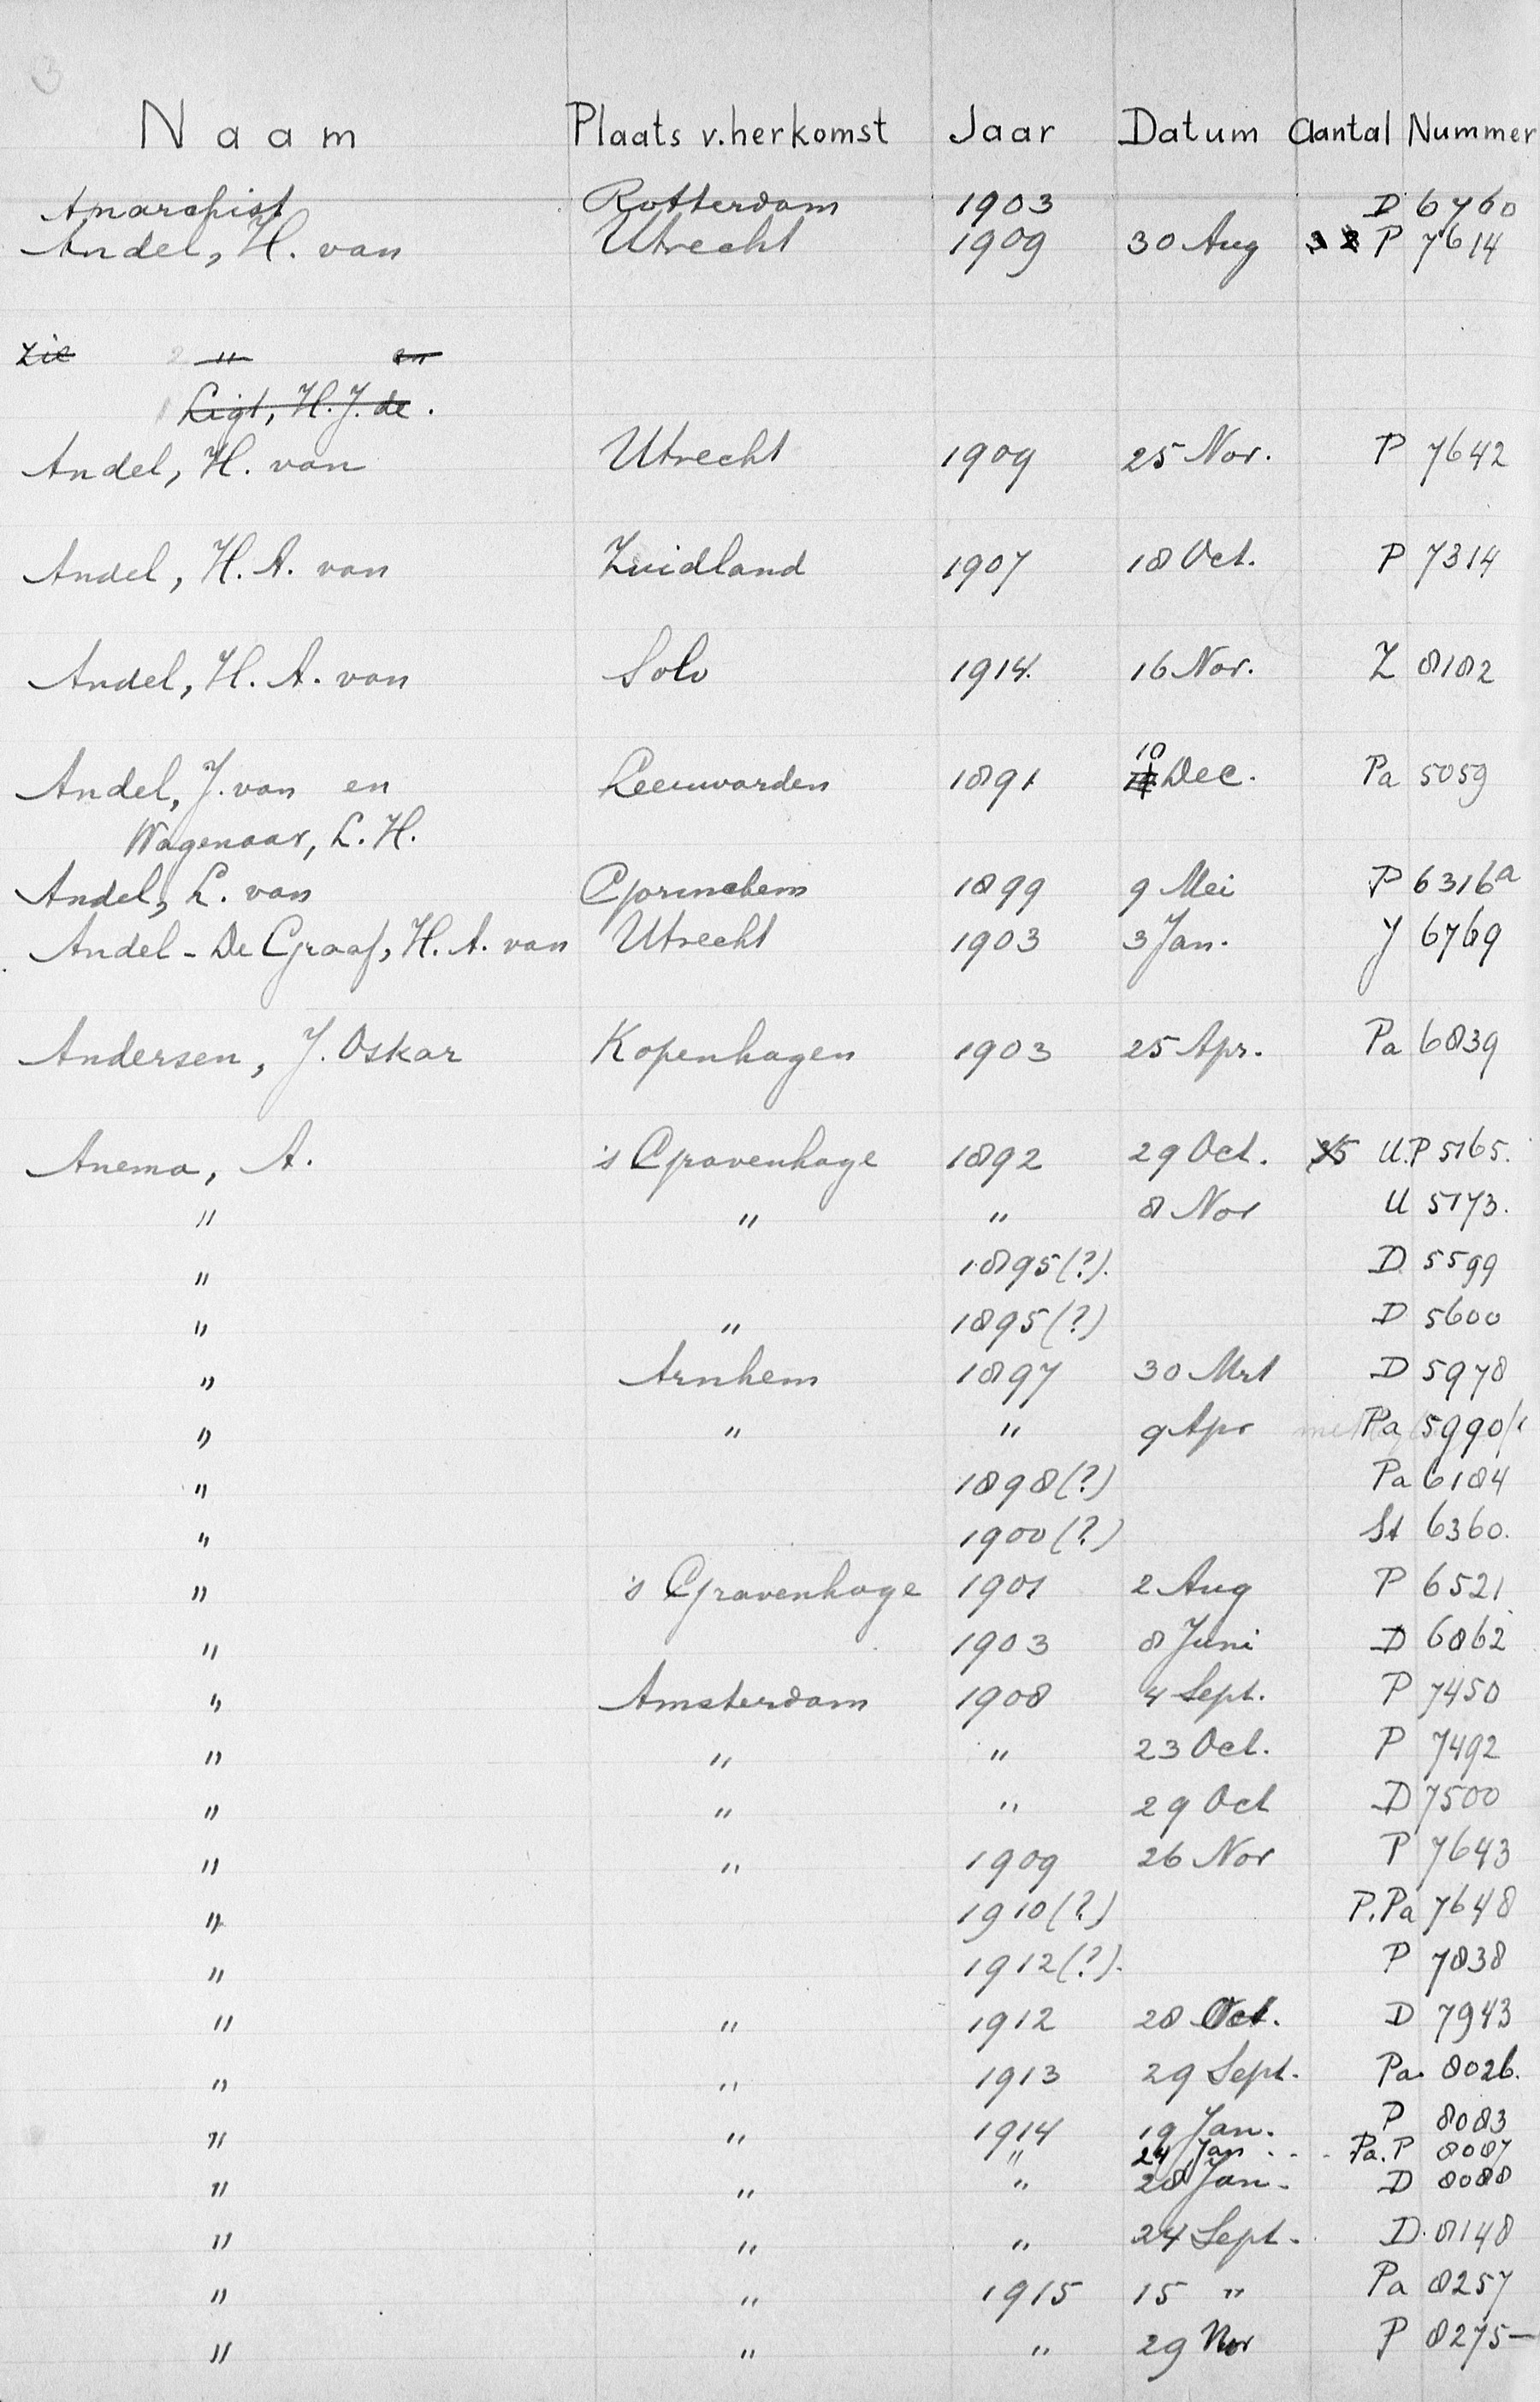 3
Naam Plaats v. herkomst Jaar Datum Aantal Nummer
Anarchist Rotterdam 1903 D 6760
Andel, H. van Utrecht 1909 30 Aug P 7614
zie 2 " en
1 Ligt, H. J. de.
Andel, H. van Utrecht 1909 25 Nov. P 7642
Andel, H. A. van Zuidland 1907 18 Oct. P 7314
Andel, H. A. van Solo 1914. 16 Nov. Z 8182
Andel, J. van en Leeuwarden 1891 10 Dec. Pa 5059
Wagenaar, L. H.
Andel, L. van Gorinchem 1899 9 Mei P 6316a
Andel - De Graaf, H. A. van Utrecht 1903 3 Jan. J 6769
Andersen, J. Oskar Kopenhagen 1903 25 Apr. Pa 6839
Anema, A. 's Gravenhage 1892 29 Oct. U.P 5165.
" " " 8 Nov U 5173.
" 1895(?). D 5599
" " 1895(?) D 5600
" Arnhem 1897 30 Mrt D 5978
" " " 9 Apr Pa 5990/1
" 1898(?) Pa 6184
" 1900(?) St 6360.
" 's Gravenhage 1901 2 Aug P 6521
" 1903 8 Juni D 6862
" Amsterdam 1908 4 Sept. P 7450
" " " 23 Oct. P 7492
" " " 29 Oct D 7500
" " 1909 26 Nov P 7643
" 1910(?) P.Pa 7648
" 1912(?). P 7838
" " 1912 28 Oct. D 7943
" " 1913 29 Sept. Pa. 8026.
" " 1914 19 Jan. P 8083
" 24 Jan . . - Pa. P 8087
" " " 28 Jan. D 8088
" " " 24 Sept. D. 8148
" " 1915 15 " Pa 8257
" " " 29 Nov P 8275—